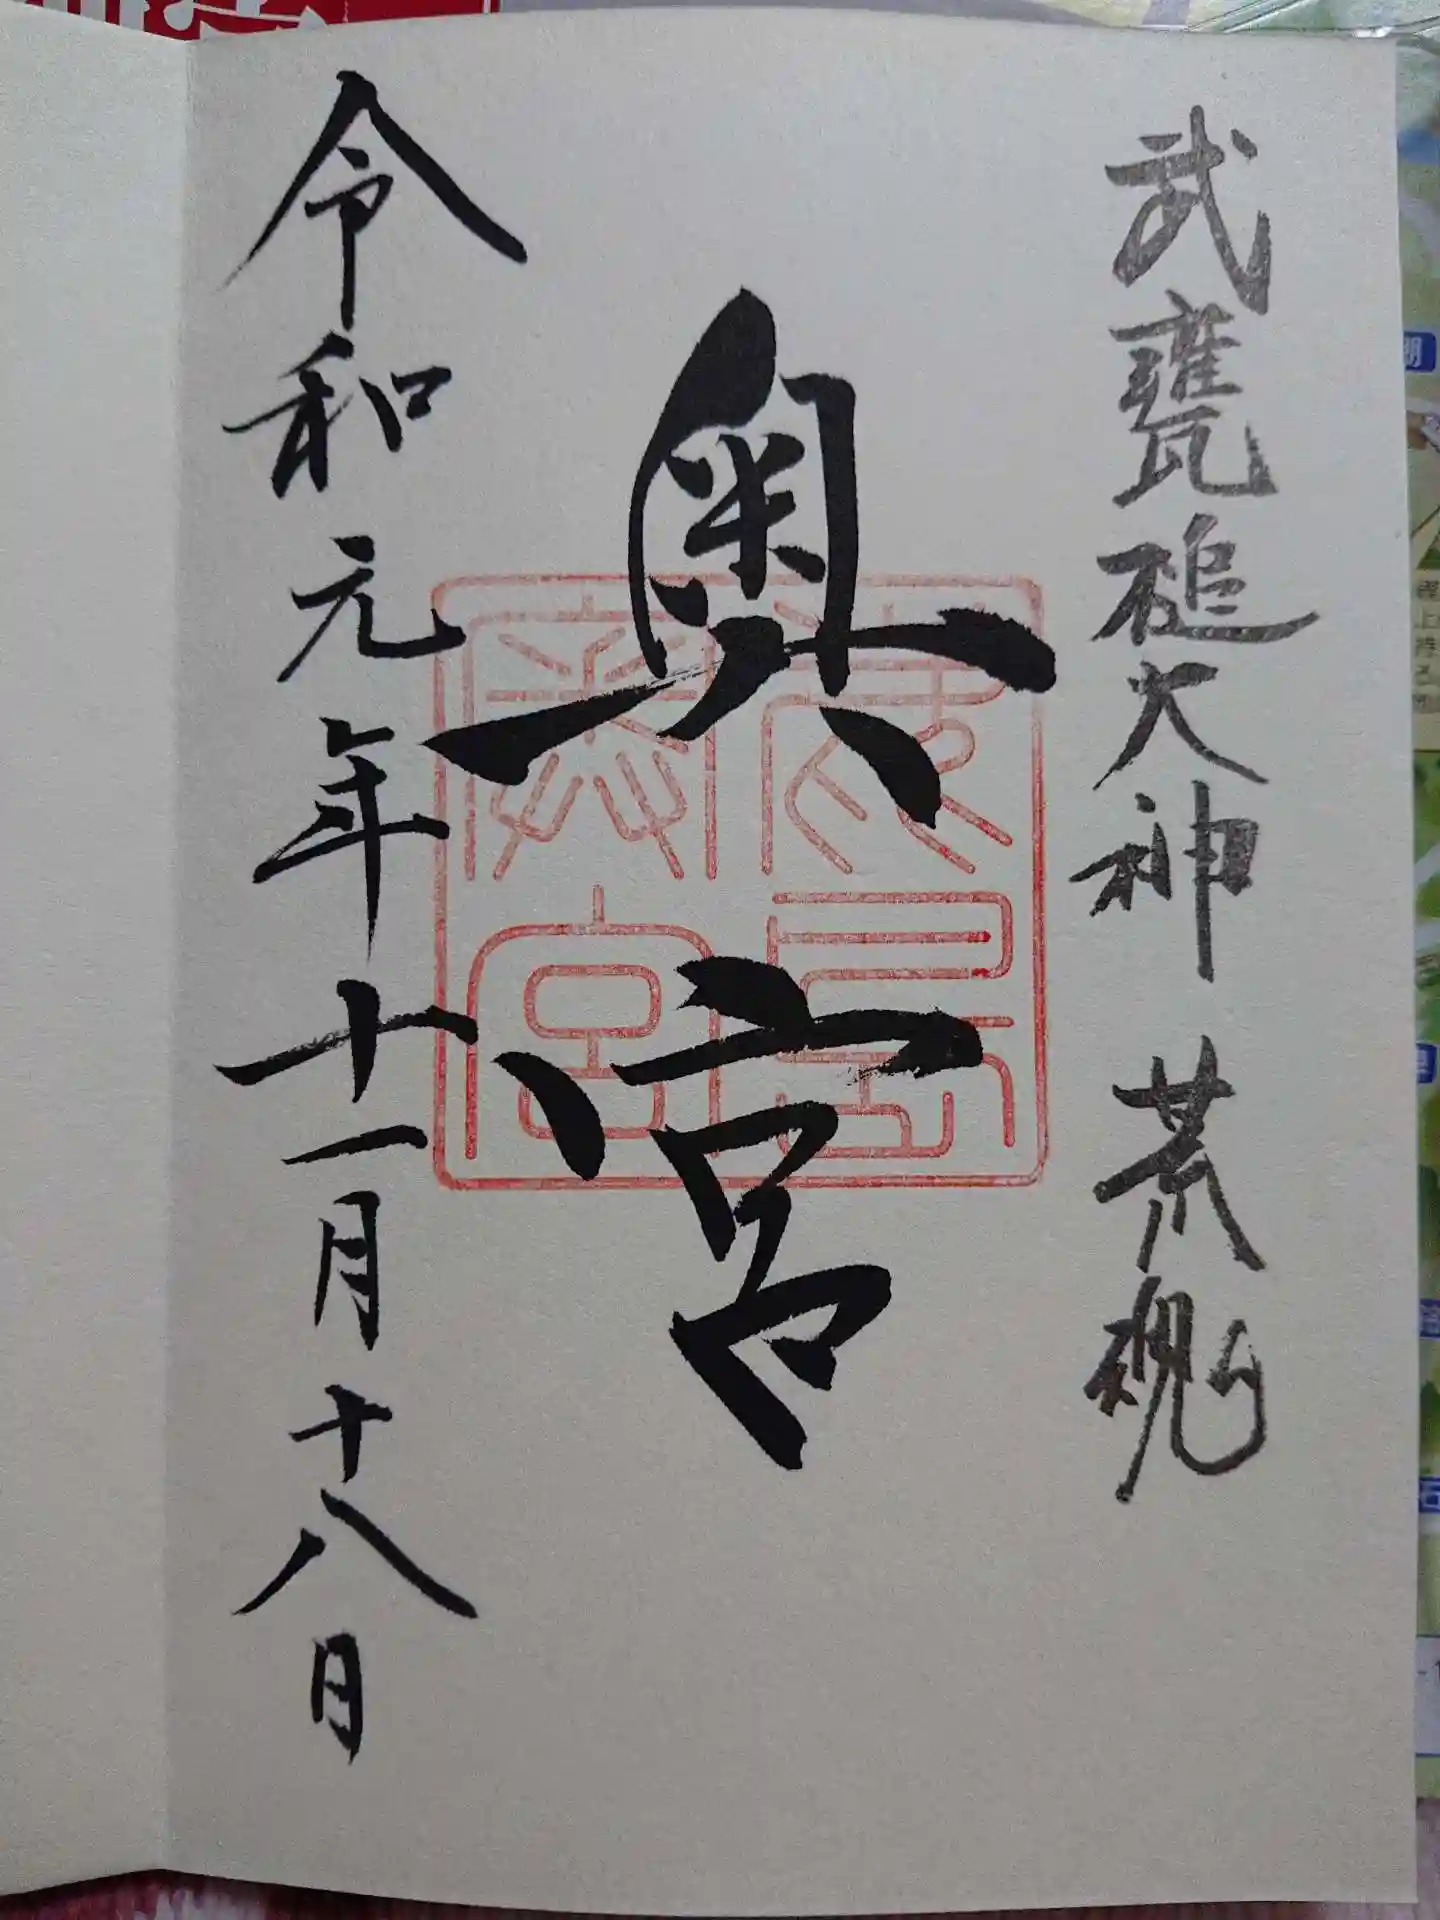 武甕槌大神 荒魂
奥宮
鹿島
奥宮
令和元年十一月十八日